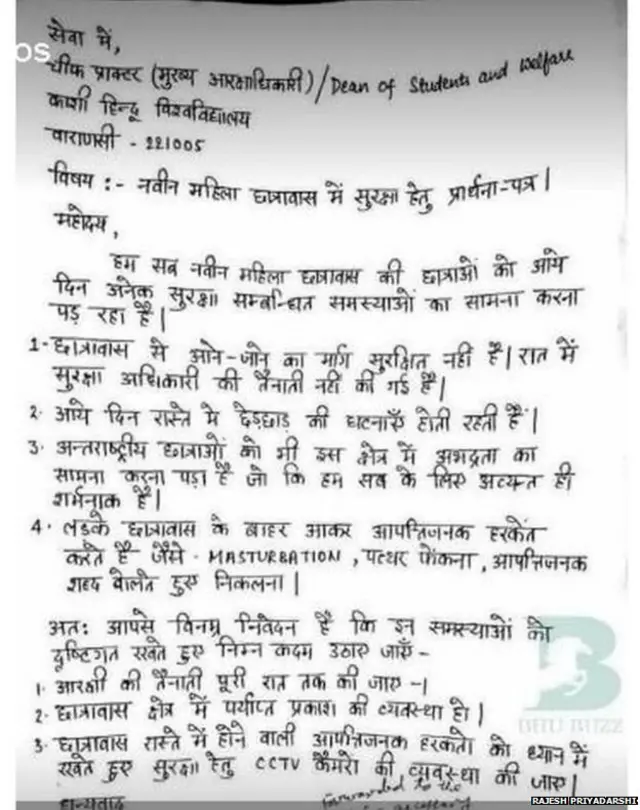 os
सेवा में,
चीफ प्राक्टर (मुख्य आरक्षाधिकारी)/Dean of Students and welfare
काशी हिन्दू विश्वविद्यालय
वाराणसी - 221005
विषय :- नवीन महिला छात्रावास में सुरक्षा हेतु प्रार्थना-पत्र।
महोदय,
हम सब नवीन महिला छात्रावास की छात्राओं को आये
दिन अनेक सुरक्षा सम्बन्धित समस्याओं का सामना करना
पड़ रहा है।
1- छात्रावास से आने-जाने का मार्ग सुरक्षित नही है। रात में
सुरक्षा अधिकारी की तैनाती नही की गई है।
2. आये दिन रास्ते मे छेड़छाड़ की घटनाएँ होती रहती हैं।
3. अन्तराष्ट्रीय छात्राओं को भी इस क्षेत्र में अभद्रता का
सामना करना पड़ा है जो कि हम सब के लिए अत्यन्त ही
शर्मनाक है।
4. लड़के छात्रावास के बाहर आकर आपत्तिजनक हरकत
करते है जैसे - MASTURBATION, पत्थर फेंकना, आपत्तिजनक
शब्द बोलते हुए निकलना।
अतः आपसे विनम्र निवेदन है कि इन समस्याओं को
दृष्टिगत रखते हुए निम्न कदम उठाए जाएँ -
1. आरक्षी की तैनाती पूरी रात तक की जाए -।
2. छात्रावास क्षेत्र में पर्याप्त प्रकाश की व्यवस्था हो।
3. छात्रावास रास्ते में होने वाली आपत्तिजनक हरकतो को ध्यान में
रखते हुए सुरक्षा हेतु CCTV कैमरो की व्यवस्था की जाए।
धन्यवाद forwarded to the
B
BHU BUZZ
RAJESH PRIYADARSHI